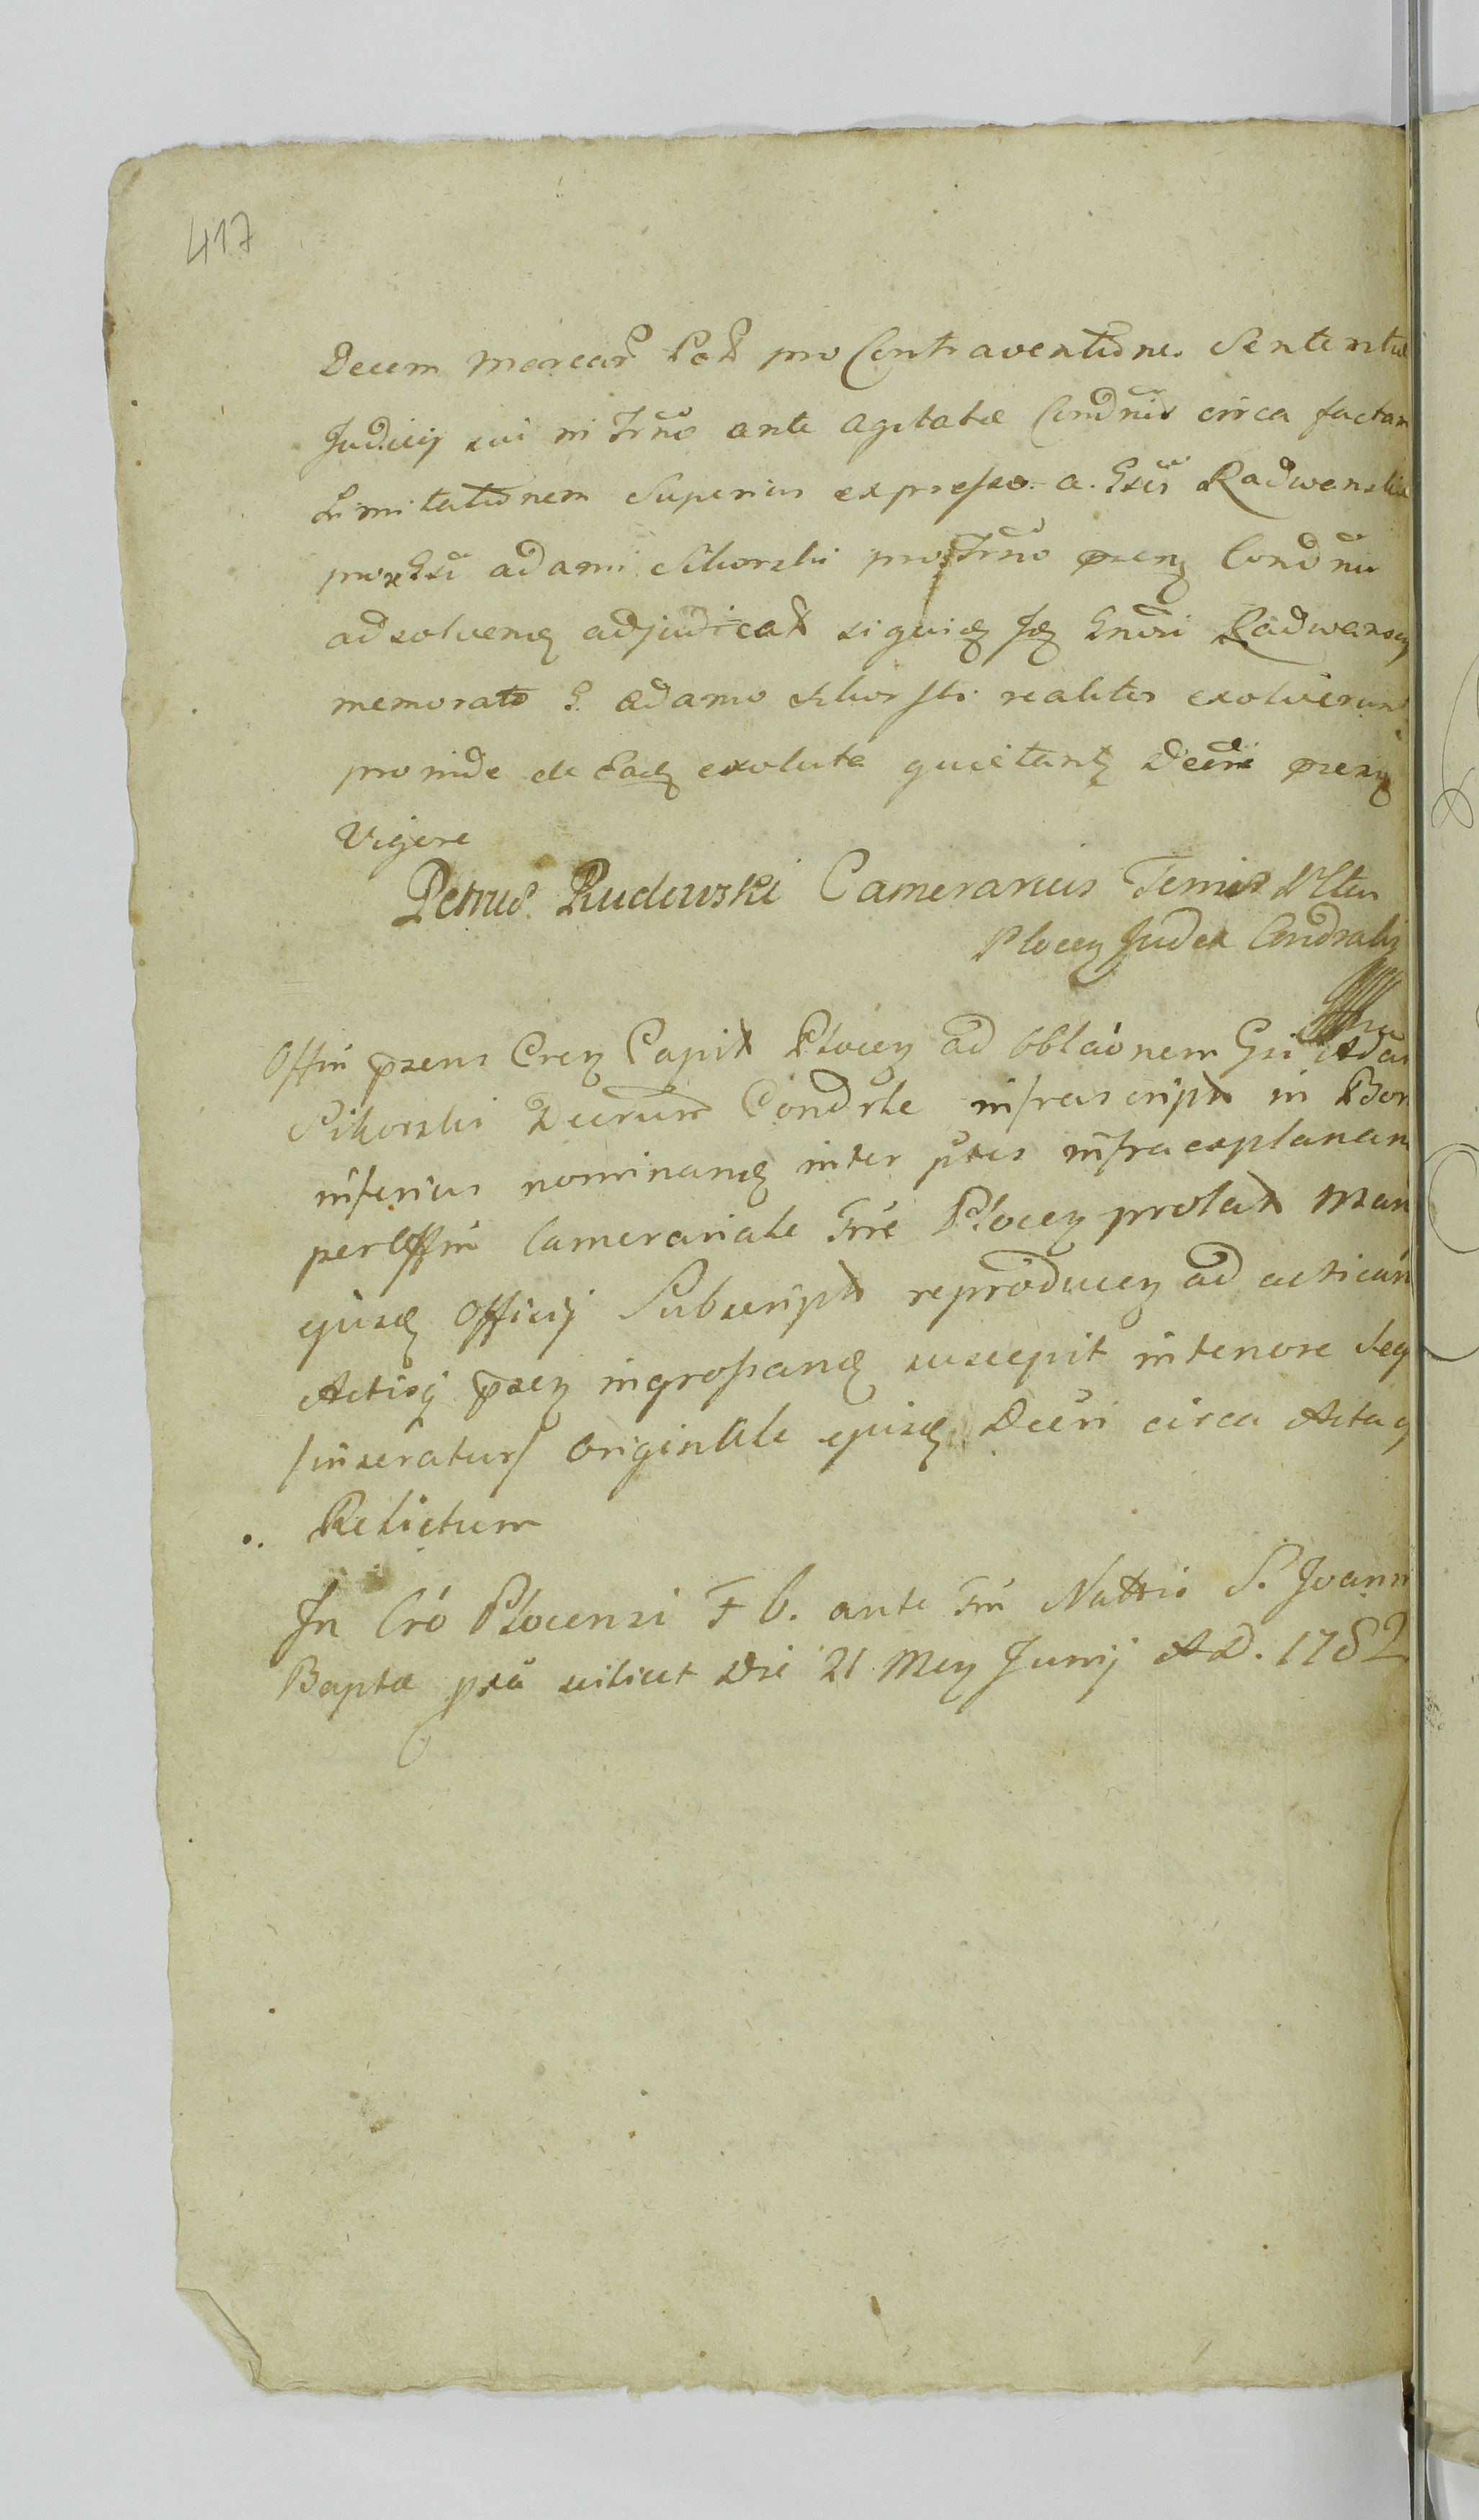 417
Decem Marcar Pol pro Contraventione Sententiæ
Judicij sui in Trno ante agitatæ Condnis circa factam
Limitationem Superius expresso a. Gsis Radwanskie
pro Gsi adami Sikorski pro Trno præsen Condnis
adsolven adjudicat siquid Id Gnosi Radwanscy
memorato G. adamo Sikorski realiter exolverunt
proinde de Eadem exoluta quietant Decri præsen
Vigore
Petrus Rudowski Camerarius Terris
Plocen Judex Condralis
Offiu præsens Cren Capit Plocen ad oblaonem Gsi Ada
Sikorski Decrum Condrle infrascript in Bon
inferius nominand inter ptes infra explanan
per Offiu Camerariale Trre Plocen prolat Man
ejusd Officij Subscript reproducen ad actican
Actisq præsen ingrossand suscepit in tenore Seq
/inseratur/ Originale ejusd Decri circa Acta
Relictum
In Cro Plocensi F 6. ante Fm Nattis S. Joann
Baptæ pxa scilicet Die 21 Men Junij A D. 1782